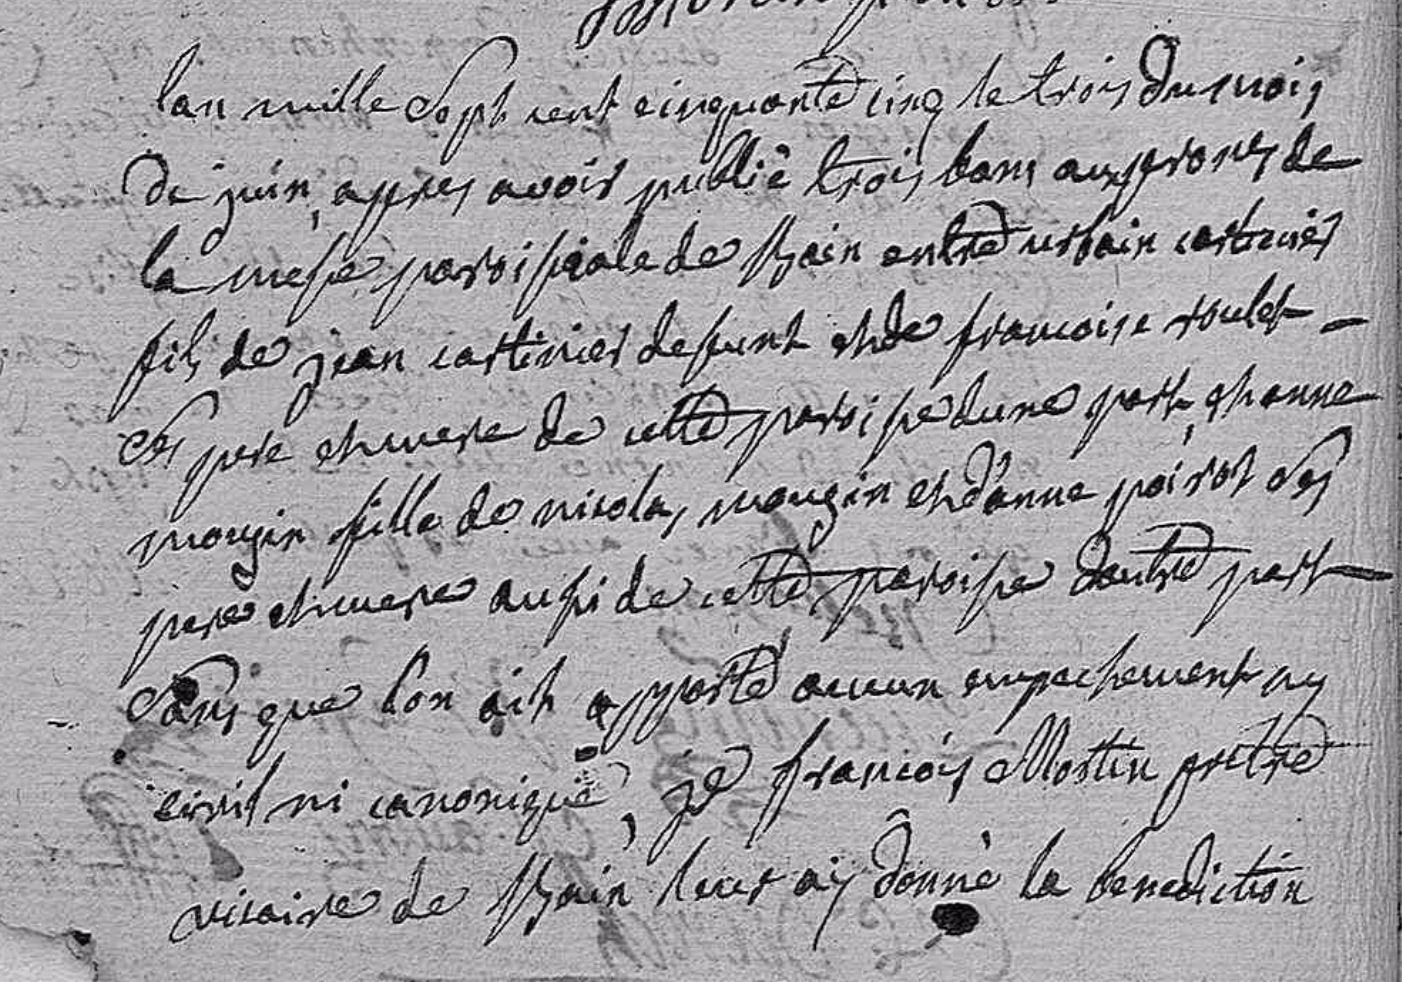 lan mille Sept cent cinquante cinq le trois du mois
de juin, appres avoir publié trois bans aux prones de
la messe paroissiale de Bain entre urbain cartinier
fils de jean cartinier defunt et de francoise roulet
Ses pere et mere de cette paroisse dune part, et anne
mougin fille de nicolas mougin et d'anne poirot Ses
pere et mere aussi de cette paroisse dautre part
Sans que l'on ait apporté aucun empechement ny
civil ni canonique, je françois Martin pretre
vicaire de Bain leur ay donné la benediction